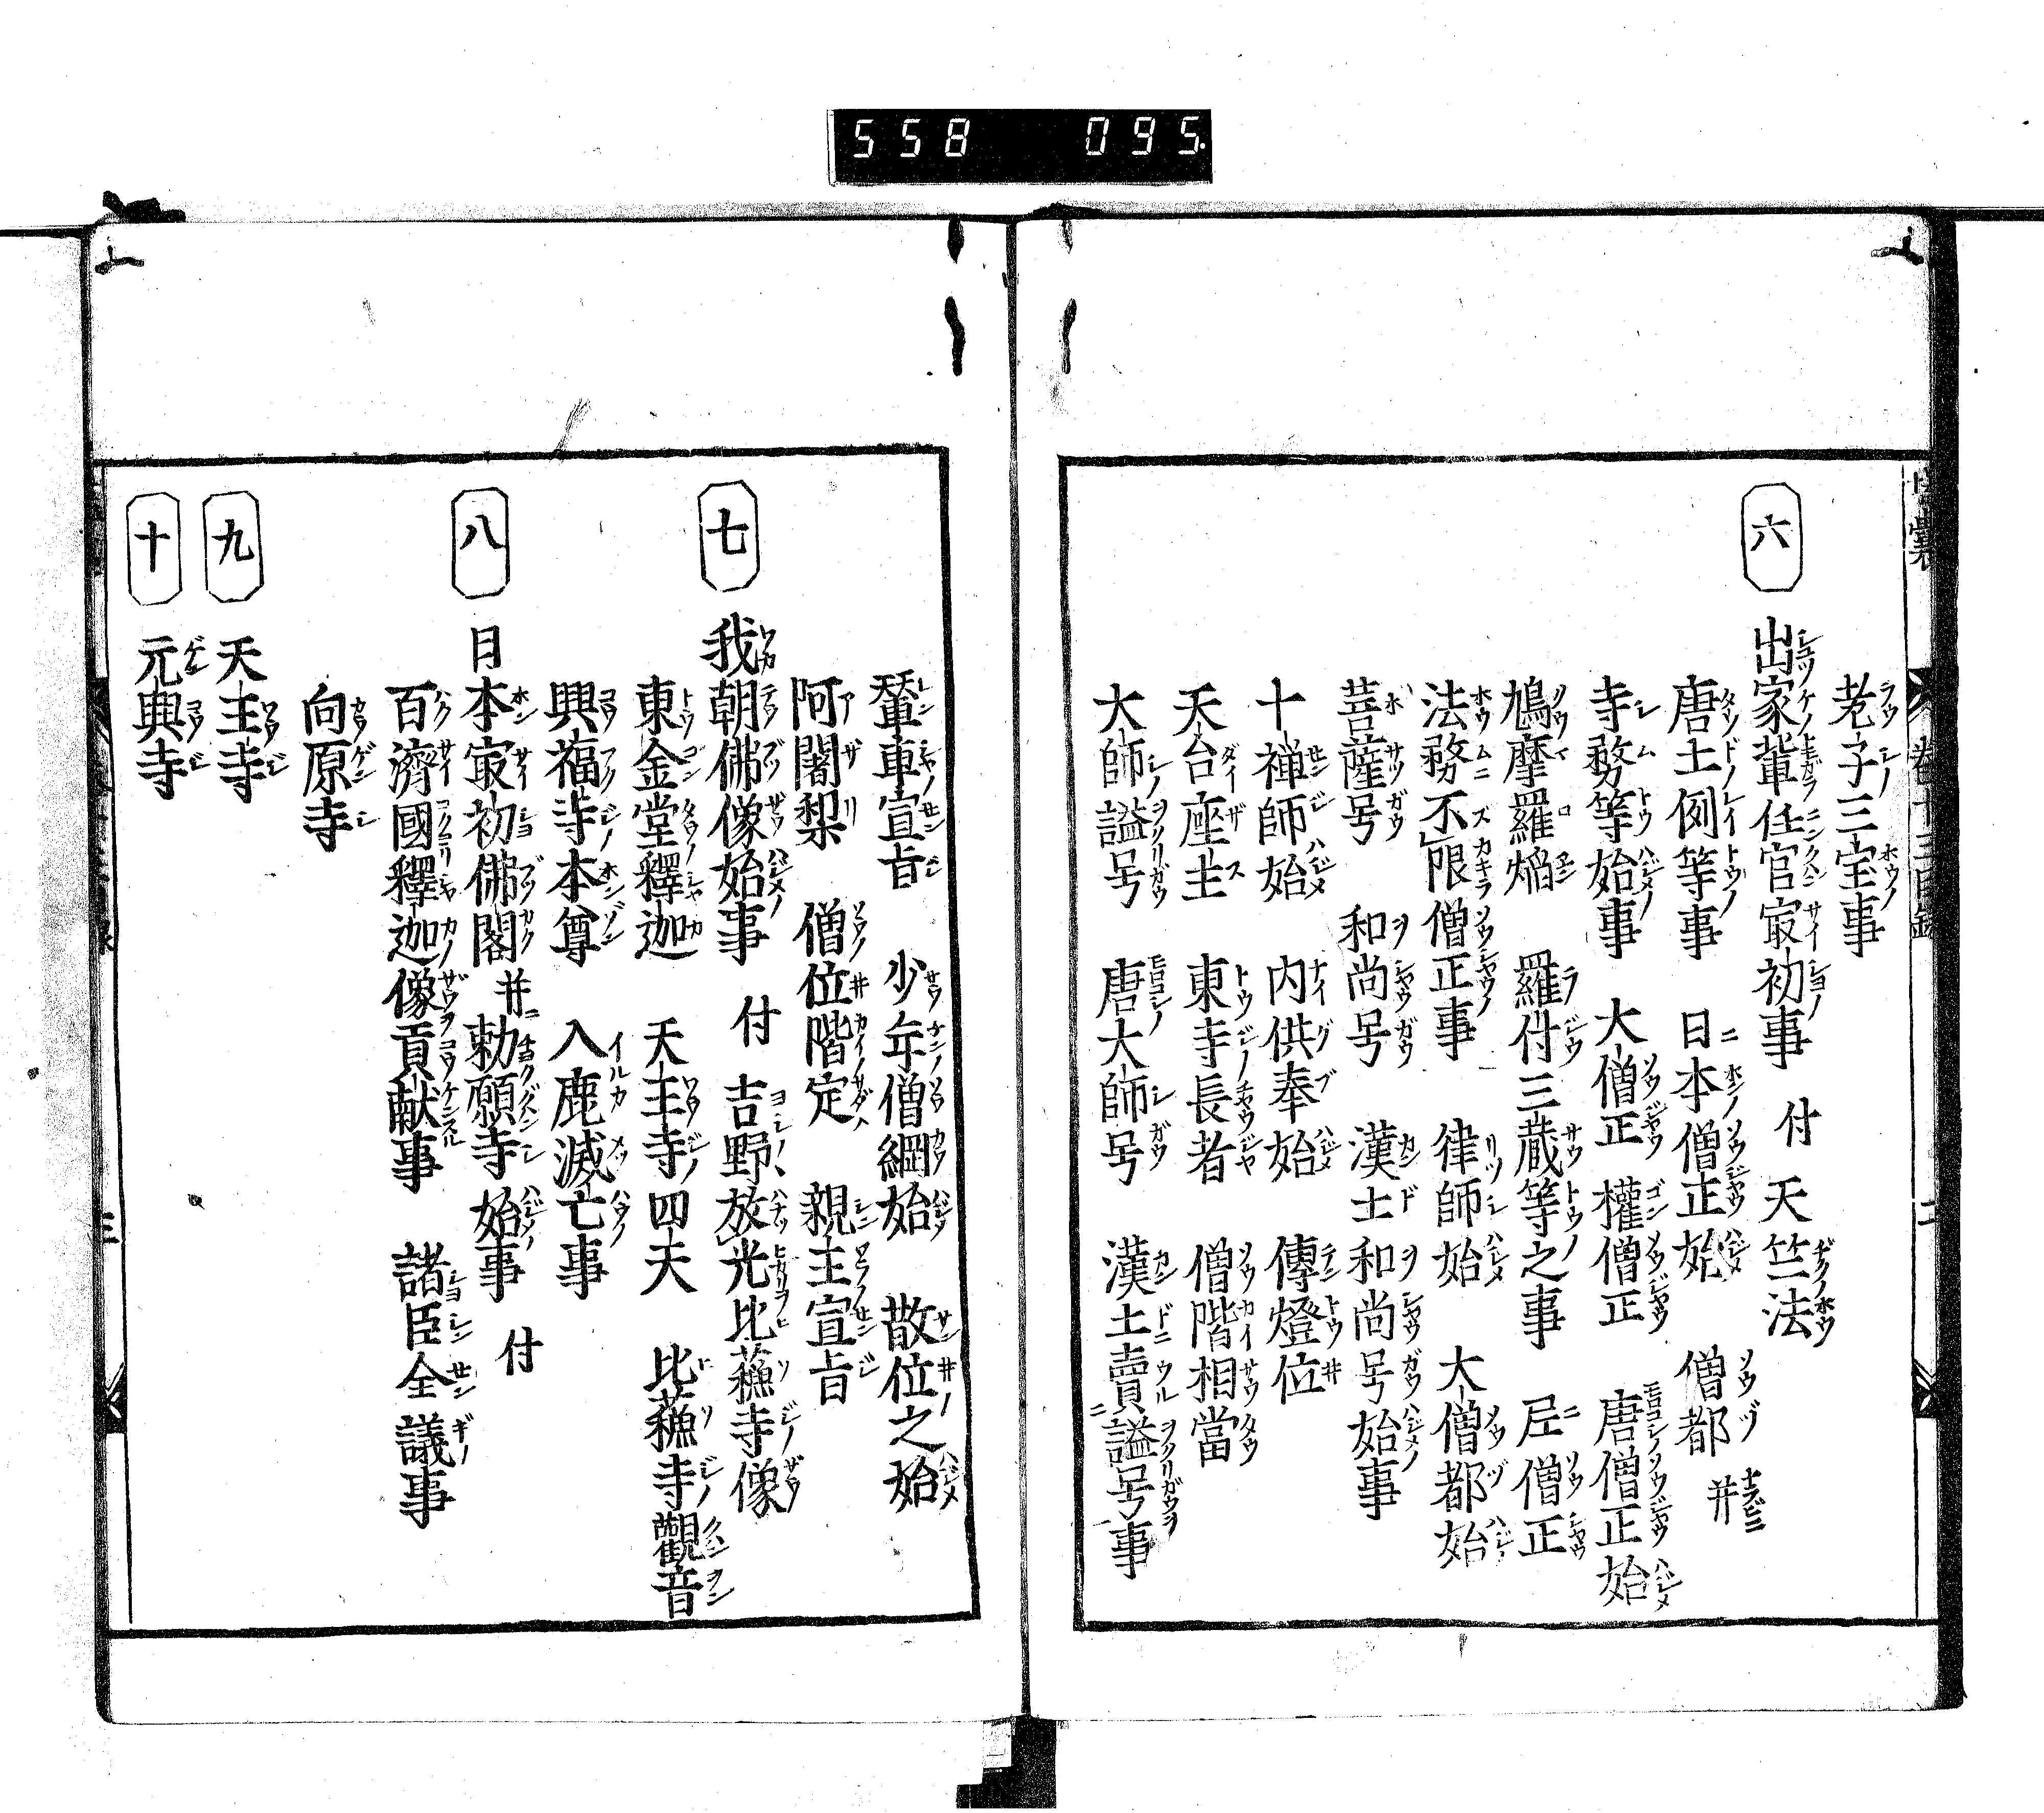 558 095.
老子三宝事
六 出家輩任官㝡初事 付 天竺法
唐土例等事 日本僧正始 僧都 并
寺務等始事 大僧正 權僧正 唐僧正始
鳩摩羅焔 羅什三蔵等之事 尼僧正
法務不限僧正事 律師始 大僧都始
菩薩号 和尚号 漢土和尚号始事
十禅師始 内供奉始 傳燈位
天台座主 東寺長者 僧階相當
大師謚号 唐大師号 漢土賣謚号事
輦車宣旨 少年僧綱始 散位之始
阿闍梨 僧位階定 親王宣旨
七 我朝佛像始事 付 吉野放光比蘓寺像
東金堂釋迦 天王寺四天 比蘓寺觀音
興福寺本尊 入鹿滅亡事
八 日本㝡初佛閣并勅願寺始事 付
百濟國釋迦像貢献事 諸臣全議事
向原寺
九 天王寺
十 元興寺